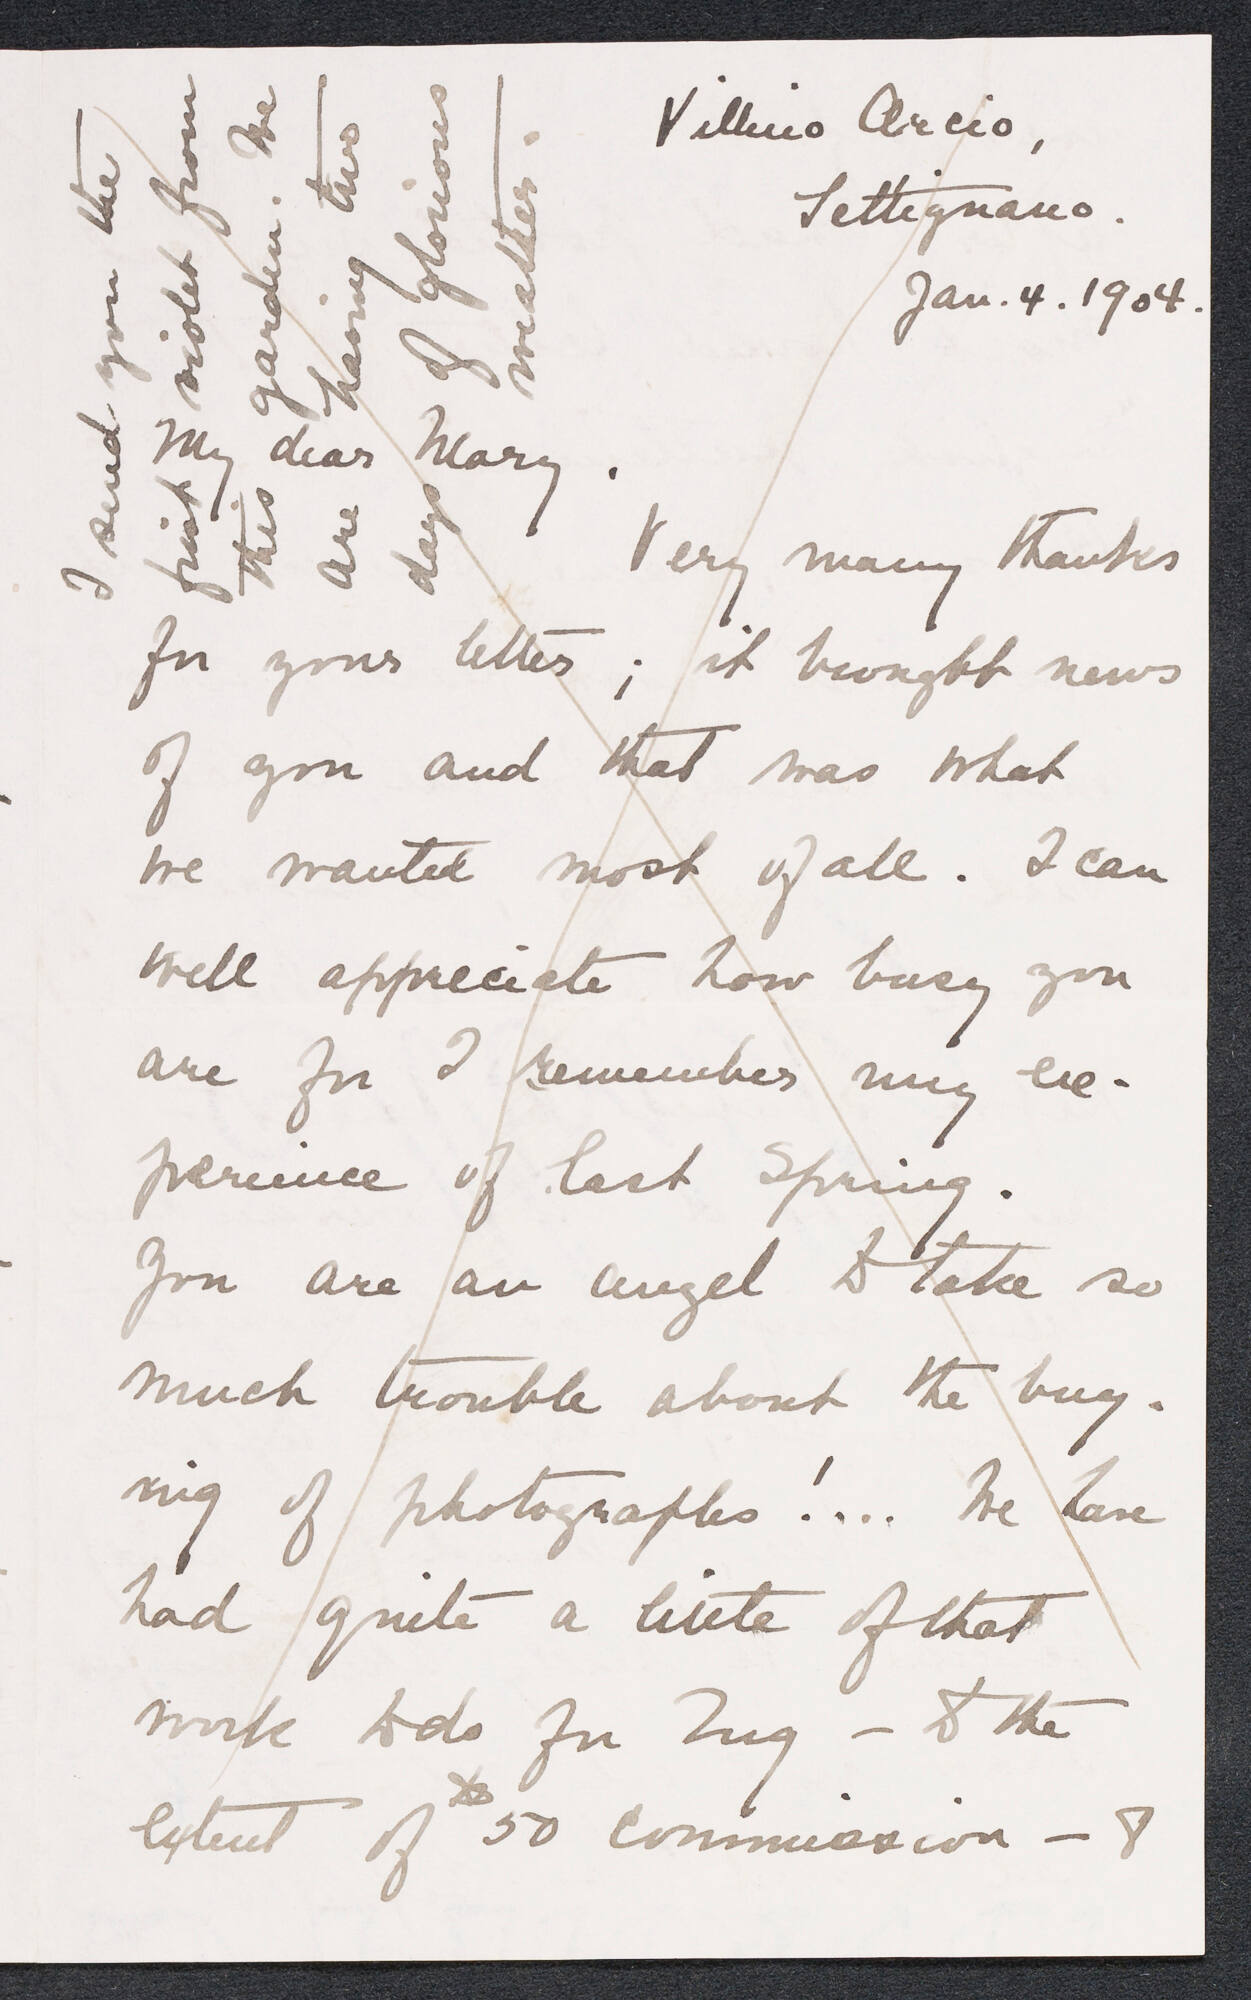 Villino Orcio,
Settignano.
Jan. 4. 1904.
My dear Mary.
Very many thanks
for your letter; it brought news
of you and that was what
we wanted most of all. I can
well appreciate how busy you
are for I remember my ex-
perience of last Spring.
You are an angel to take so
much trouble about the buy-
ing of photographs!.... We have
had quite a little of that
work to do for Zug – to the
extent of $50 commission – &
I send you the
first violet from
this garden. We
are having two
days of glorious
weather.